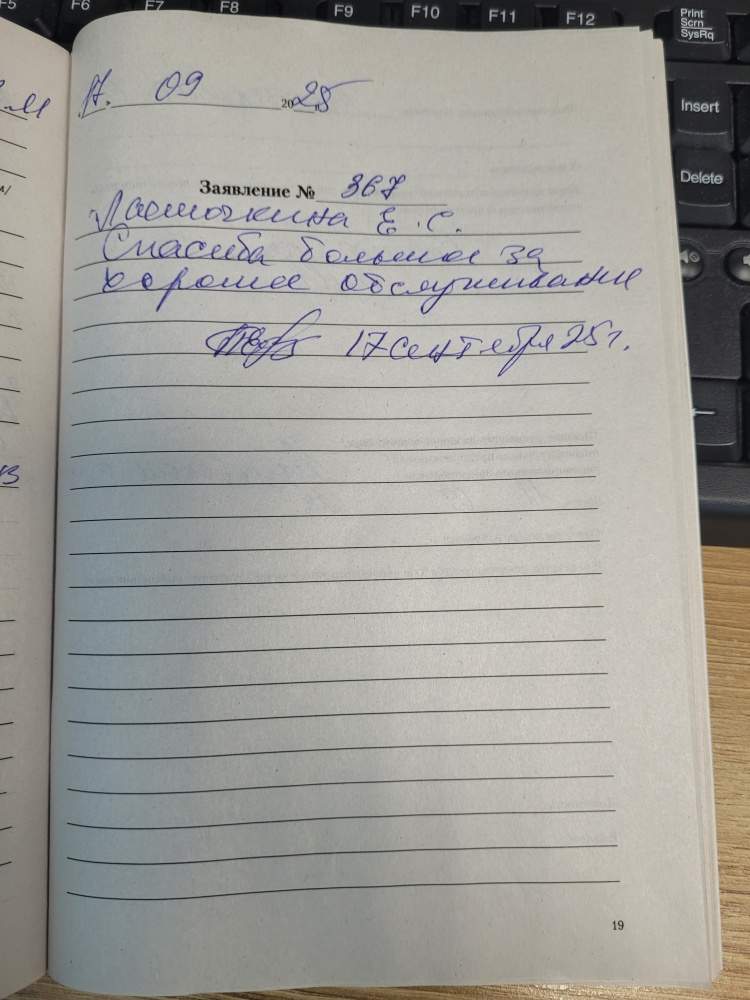 F5 F6 F7 F8 F9 F10 F11 F12 Print Scrn SysRq
Insert
Delete
17. 09 2025
Заявление № 367
Ласточкина Е. С.
Спасиба большое за
хорошее обслуживание
17 сентября 25 г.
19